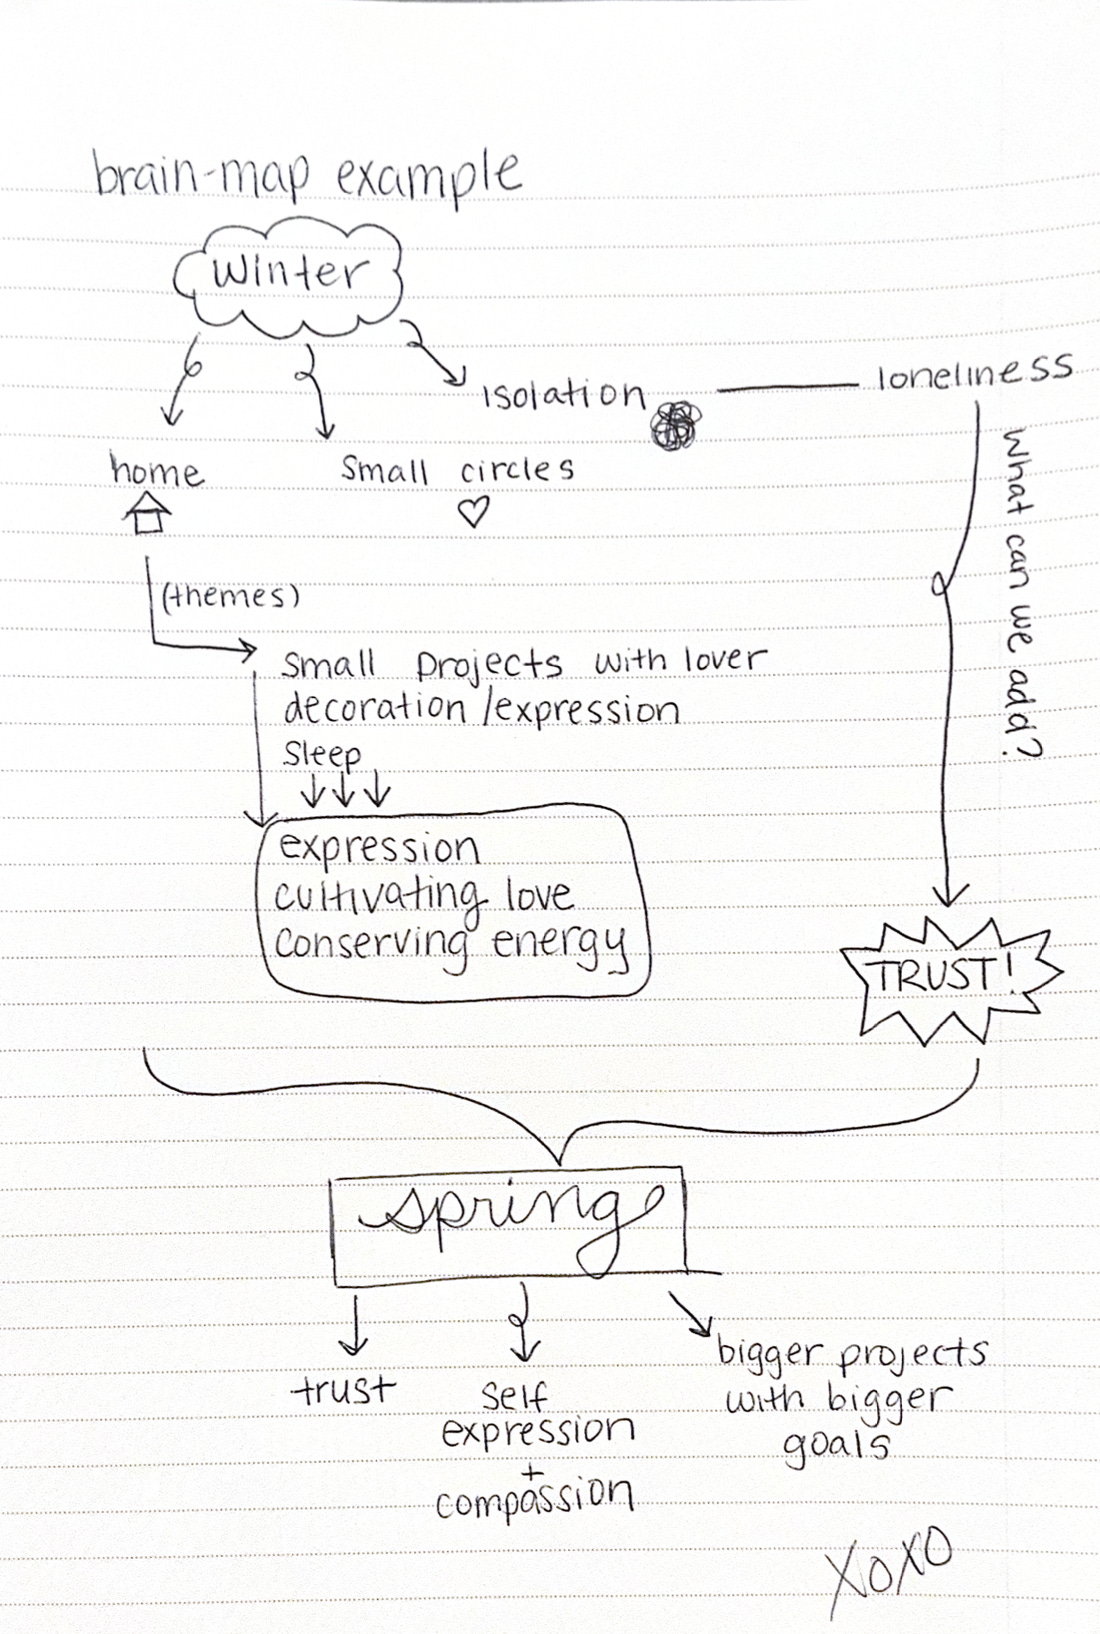 brain-map example
Winter
isolation
loneliness
What can we add?
home
Small circles
(themes)
Small projects with lover
decoration/expression
Sleep
expression
cultivating love
conserving energy
TRUST!
spring
trust
Self
expression
+
compassion
bigger projects
with bigger
goals
XOXO